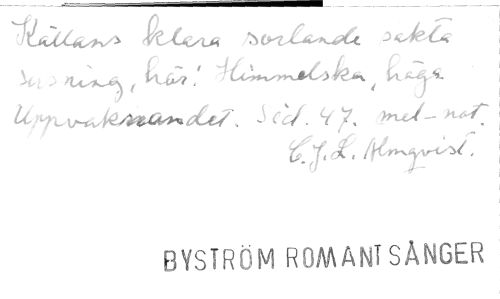 Källans klara sorlande sakta
susning, här! Himmelska, höga
Uppvaknandet. Sid. 47. mel-not.
C.J.L. Almqvist.
BYSTRÖM ROMANTSÅNGER